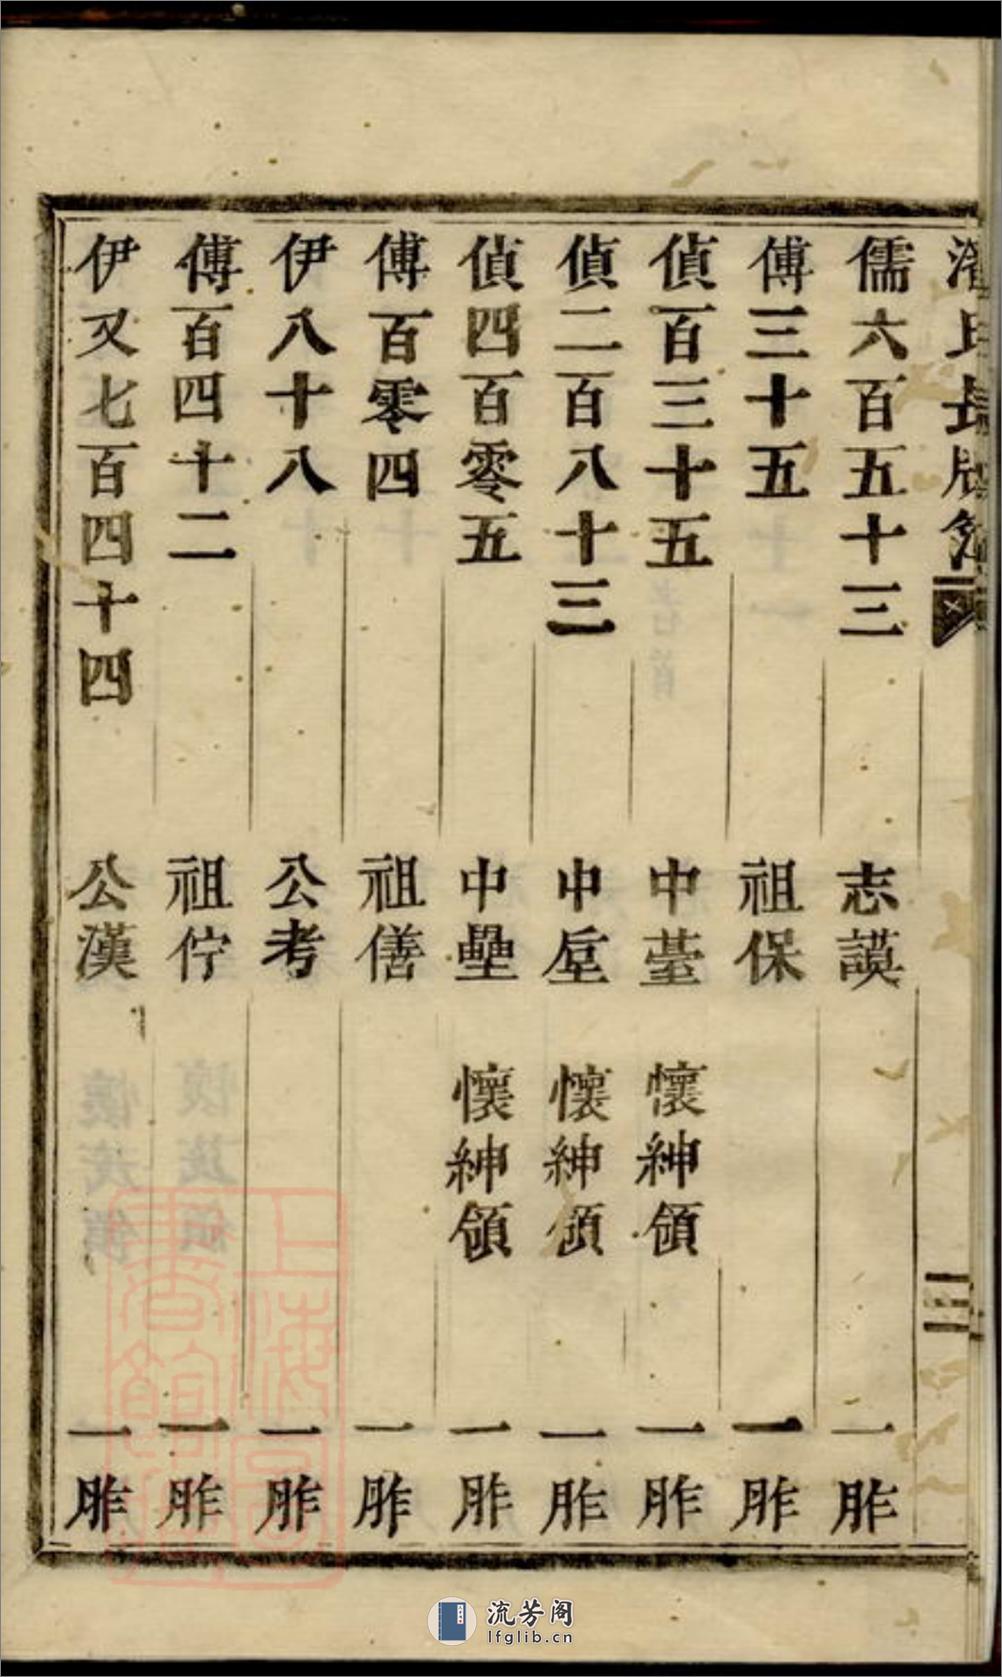 氏長房
三
儒六百五十三 志謨 一胙
傅三十五 祖保 一胙
偵百三十五 中䑓 懷紳領 一胙
偵二百八十三 中垕 懷紳領 一胙
偵四百零五 中壘 懷紳領 一胙
傅百零四 祖僐 一胙
伊八十八 公考 一胙
傅百四十二 祖佇 一胙
伊又七百四十四 公漢 一胙
上海
流芳阁
lfglib.cn